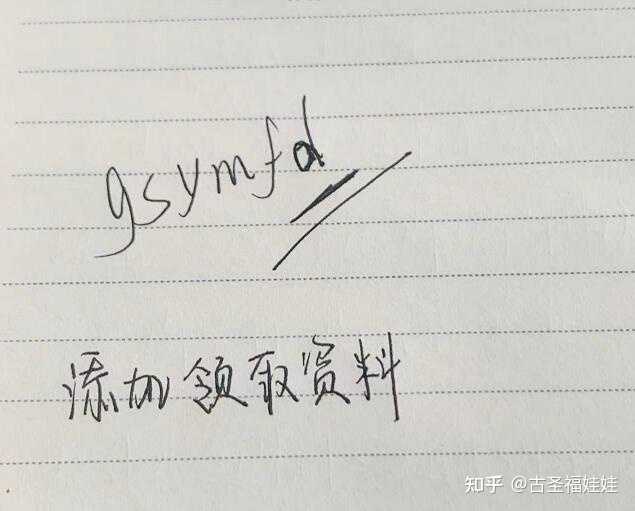 gsymfd
添加领取资料
知乎 @古圣福娃娃